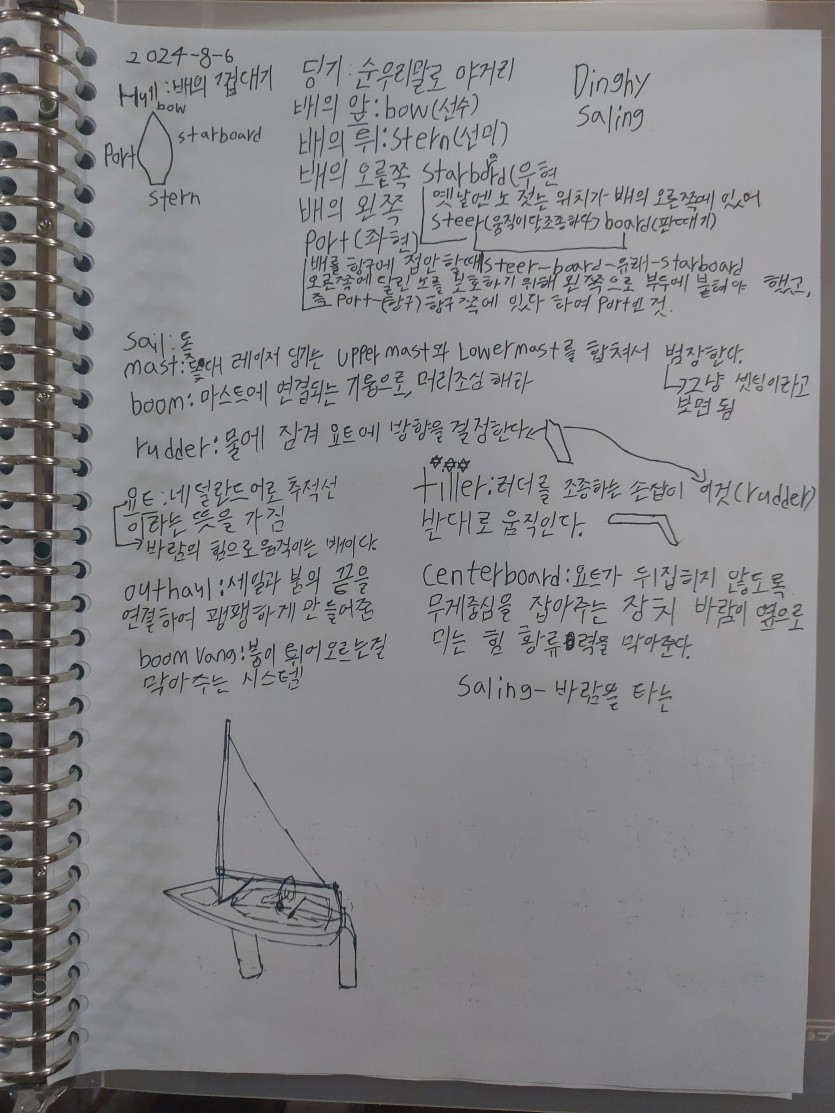 2024-8-6
Hull:배의 껍대기
bow
Port
starboard
stern
딩기:순우리말로 야거리
Dinghy
saling
배의 앞:bow(선수)
배의 뒤:stern(선미)
배의 오른쪽 starboard(우현
옛날엔 노 젓는 위치가 배의 오른쪽에 있어
steer(움직이다조종하다) board(판때기)
steer-board-유래-starboard
배의 왼쪽
port(좌현)
배를 항구에 접안 할때
오른쪽에 달린 노를 보호하기 위해 왼쪽으로 부두에 붙혀야 했고,
즉 Port-(항구)항구쪽에 있다 하여 Port인 것.
sail:돛
mast:돛대 레이저 딩기는 upper mast와 Lower mast를 합쳐서 범장한다.
그냥 셋팅이라고
보면 됨
boom:마스트에 연결되는 기둥으로, 머리조심 해라
rudder:물에 잠겨 요트에 방향을 결정한다
요트:네덜란드어로 추적선
이라는 뜻을 가짐
바람의 힘으로 움직이는 배이다.
tiller:러더를 조종하는 손잡이 이것(rudder)
반대로 움직인다.
outhaul:세일과 붐의 끝을
연결하여 팽팽하게 만들어준
centerboard:요트가 뒤집히지 않도록
무게중심을 잡아주는 장치 바람이 옆으로
미는 힘 황류력을 막아준다.
boom vang:붐이 튀어오르는걸
막아주는 시스템
saling-바람을 타는